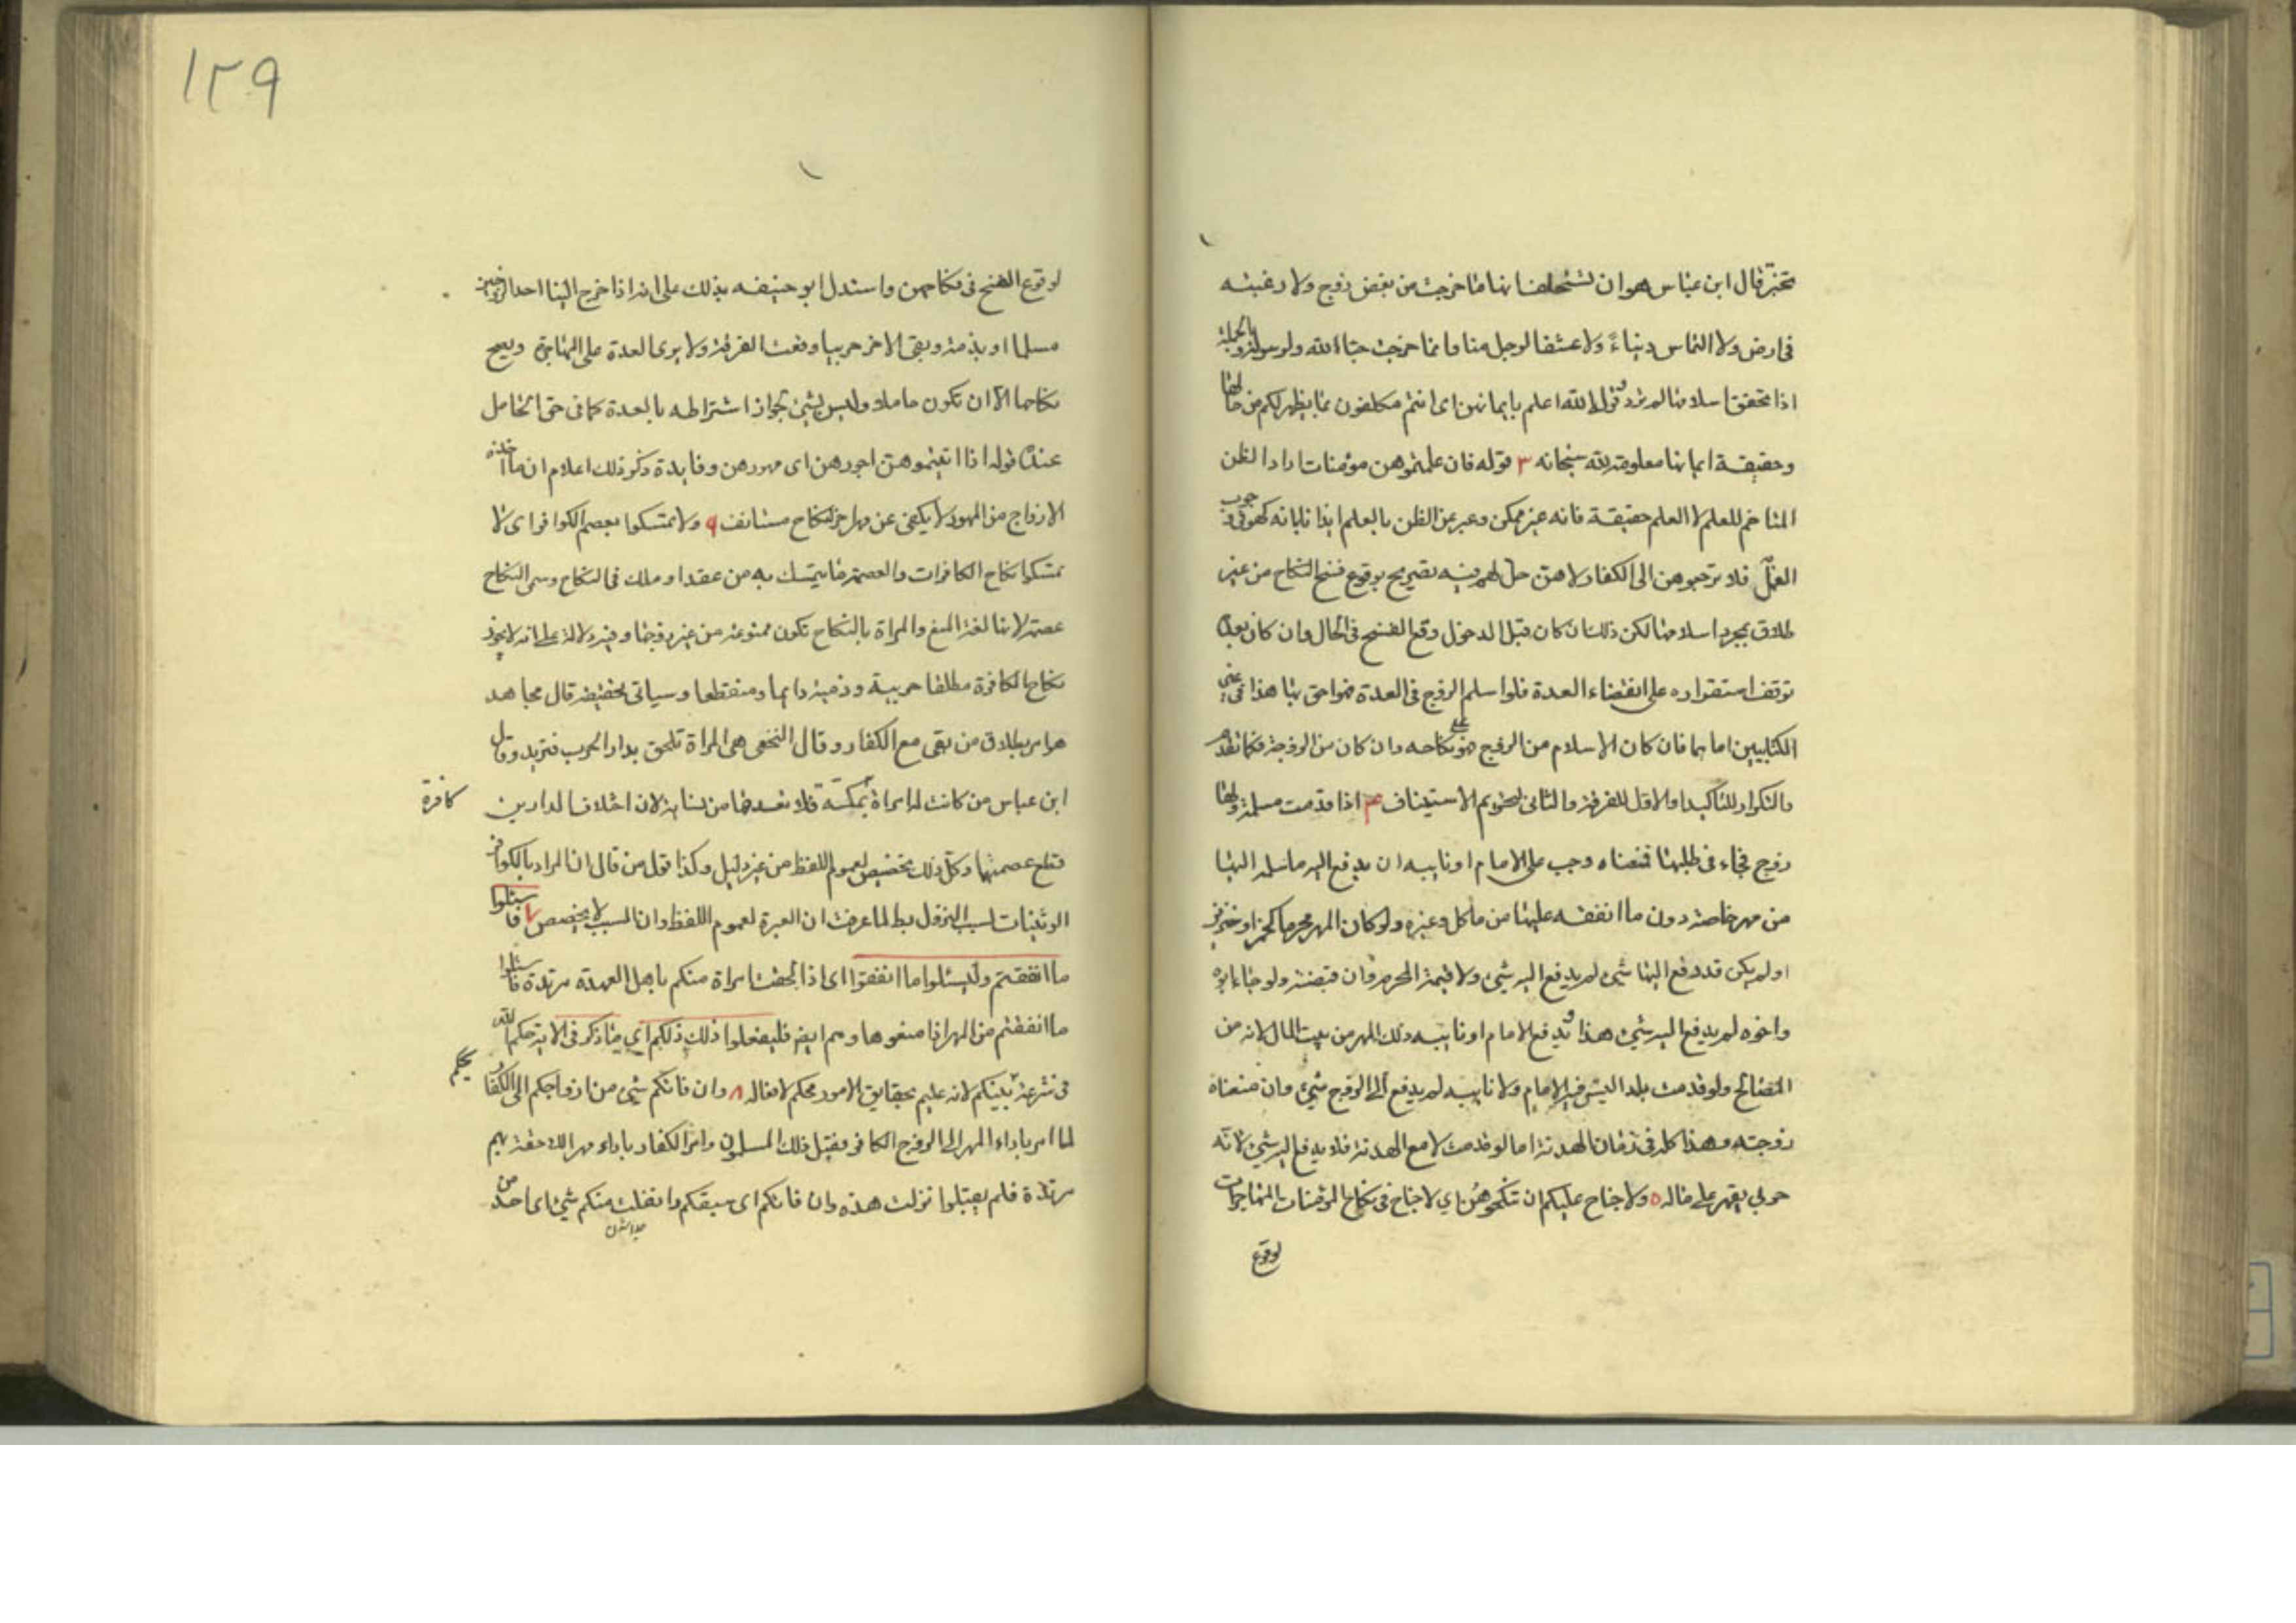 تختبر قال ابن عباس هو ان تستحلف انها ما خرجت من بغض زوج ولا رغبته
فى ارض ولا التماس دنياء ولا عشقا لرجل منا وانما خرجت حبا لله ولرسوله وبالجملة
اذا تحقق اسلامها لم ترد وقوله الله اعلم بايمانهن اى انتم مكلفون بما يظهر لكم من حالها
وحقيقة ايمانها معلومة لله سبحانه ٣ قوله فان علمتموهن مؤمنات اراد الظن
المتاخم للعلم لا العلم حقيقة فانه غير ممكن وعبر عن الظن بالعلم ايذانا بانه كهو فى وجوب
العمل فلا ترجعوهن الى الكفار لا هن حل لهم فيه تصريح بوقوع فسخ النكاح من غير
طلاق بمجرد اسلامها لكن ذلك ان كان قبل الدخول وقع الفسخ فى الحال وان كان بعده
توقف استقراره على انقضاء العدة فلو اسلم الزوج فى العدة فهو احق بها هذا فى غير
الكتابيين اما هما فان كان الاسلام من الزوج فهو على نكاحه وان كان من الزوجة فكما تقدم
والتكرار للتاكيد او الاول للفرقة والثانى لتحريم الاستيناف ۴ اذا قدمت مسلمة ولها
زوج فجاء فى طلبها فمنعناه وجب على الامام او نايبه ان يدفع اليه ما سلمه اليها
من مهر خاصة دون ما انفقه عليها من ماكل وغيره ولو كان المهر محرما كخمر او خنزير
او لم يكن قد دفع اليها شئ لم يدفع اليه شئ ولا قيمة المحرم وان قبضته ولو جاء ابوه
واخوه لم يدفع اليه شئ هذا ويدفع الامام او نايبه ذلك المهر من بيت المال لانه من
المصالح ولو قدمت بلدا ليس فيه الامام ولا نايبه لم يدفع الى الزوج شئ وان منعناه
زوجته وهذا كله فى زمان الهدنة اما لو قدمت لا مع الهدنة فلا يدفع اليه شئ لانه
حربي يقهر على ماله ٥ ولا جناح عليكم ان تنكحوهن اي لا جناح فى نكاح المؤمنات المهاجرات
لوقوع
١٢٩
لوقوع الفسخ فى نكاحهن واستدل ابو حنيفه بذلك على انه اذا خرج الينا احد الزوجين
مسلما او بذمة وبقى الاخر حربيا وقعت الفرقة ولا يرى العدة على المهاجرة ويصح
نكاحها الا ان تكون حاملا وليس بشئ لجواز اشتراطه بالعدة كما فى حق الحامل
عنده قوله اذا اتيتموهن اجورهن اى مهورهن وفايدة ذكر ذلك اعلام ان ما اخذه
الازواج من المهور لا يكفى عن مهر اخر لنكاح مستانف ٩ ولا تمسكوا بعصم الكوافر اى لا
تمسكوا نكاح الكافرات والعصمة ما يتمسك به من عقد او ملك فى النكاح وسمى النكاح
عصمة لانها لغة المنع والمراة بالنكاح تكون ممنوعة من غير زوجها وفيه دلالة على انه لا يجوز
نكاح الكافرة مطلقا حربية وذمية دايما ومنقطعا وسياتى تحقيقه قال مجاهد
هو امر بطلاق من بقى مع الكفار وقال النخعى هى المراة تلحق بدار الحرب فترتد وقال
ابن عباس من كانت له امراة بمكة فلا تعدها من نسائه لان اختلاف الدارين
كافرة
قطع عصمتها وكل ذلك تخصيص لعموم اللفظ من غير دليل وكذا قول من قال ان المراد بالكوافر
الوثنيات لسبب النزول لما عرفت ان العبرة لعموم اللفظ وان السبب لا يخصص ٧ واسئلوا
ما انفقتم وليسئلوا ما انفقوا اى اذا لحقت امراة منكم باهل العهد مرتدة فاسئلوا
ما انفقتم من المهر اذا منعوها وهم ايضا فليفعلوا ذلك ذلكم اي ما ذكر فى الاية حكم الله
يحكم
فى شرعه بينكم لانه عليم بحقايق الامور محكم لافعاله ٨ وان فاتكم شئ من ازواجكم الى الكفار
لما امر باداء المهر الى الزوج الكافر فقبل ذلك المسلمون وامر الكفار باداء مهر اللاحقة بهم
مرتدة فلم يقبلوا نزلت هذه وان فاتكم اى سبقكم وانفلت منكم شئ اى احد من